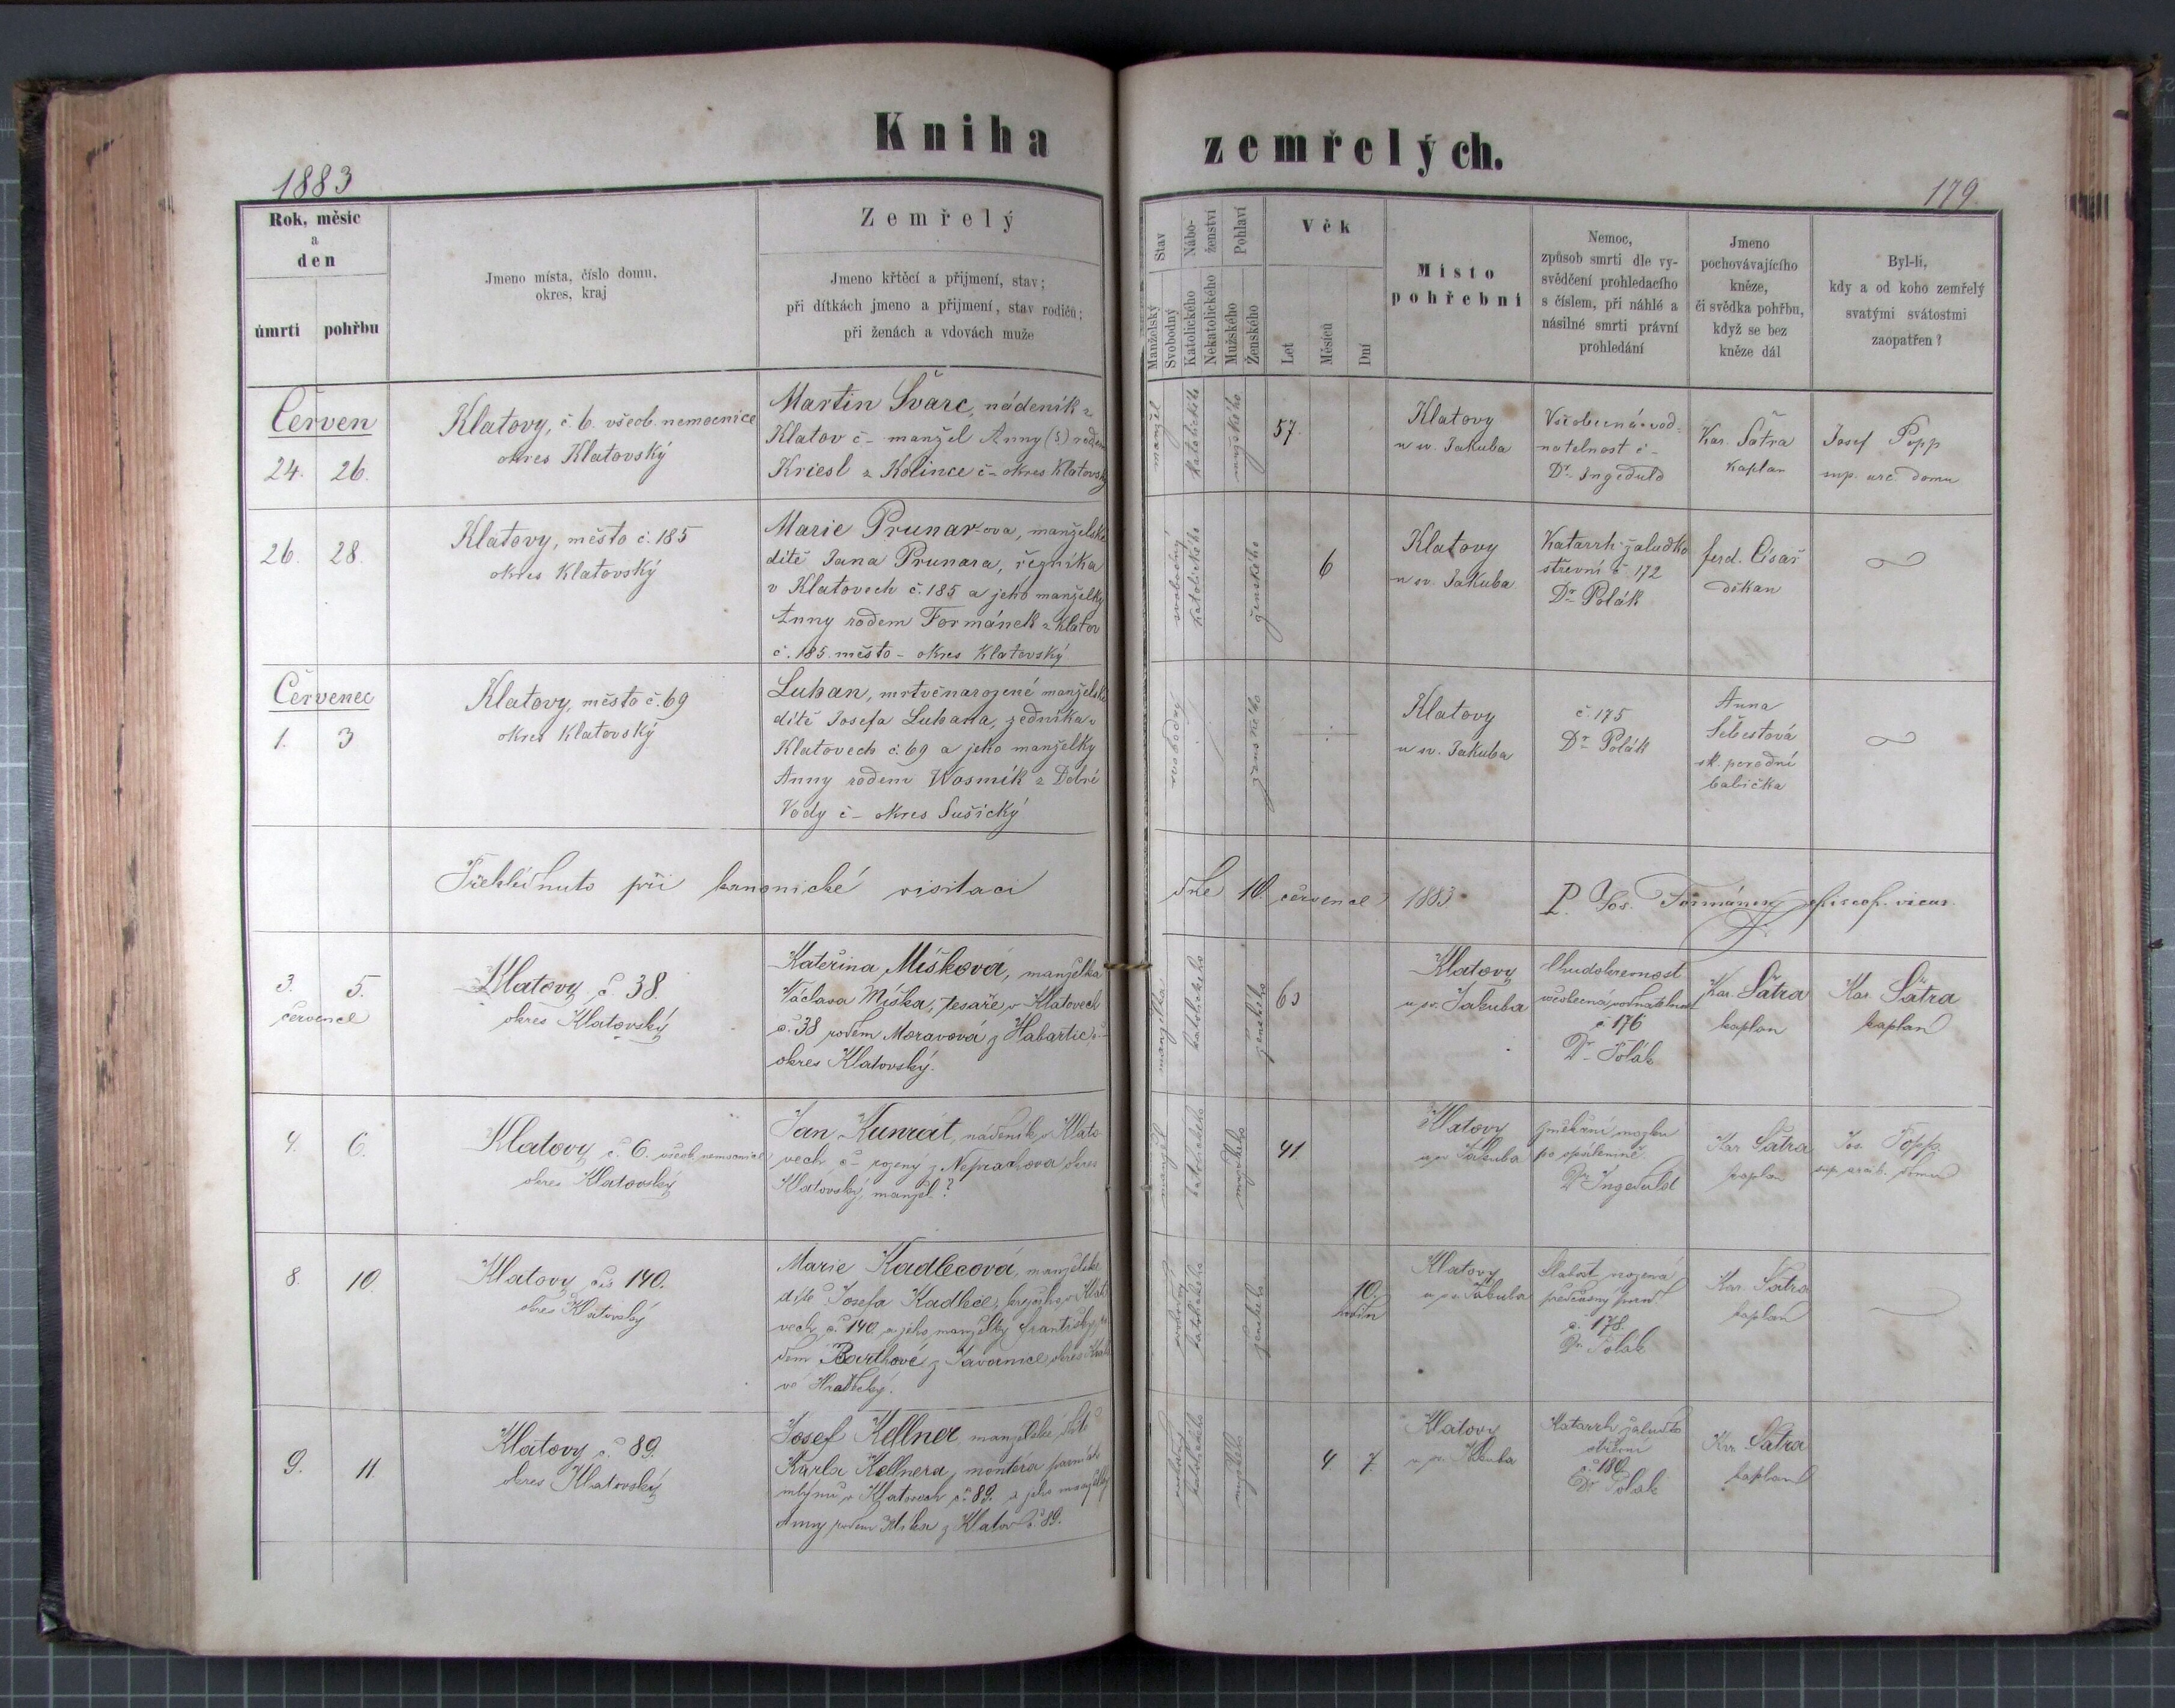 Kniha
zemřelých.
1883
179.
Rok, měsíc
a
den
úmrtí
pohřbu
Jmeno místa, číslo domu,
okres, kraj
Zemřelý
Jmeno křtěcí a příjmení, stav;
při dítkách jmeno a příjmení, stav rodičů;
při ženách a vdovách muže
Stav
Manželský
Svobodný
Nábo-
ženství
Katolického
Nekatolického
Pohlaví
Mužského
Ženského
Věk
Let
Měsíců
Dní
Místo
pohřební
Nemoc,
způsob smrti dle vy-
svědčení prohledacího
s číslem, při náhlé a
násilné smrti právní
prohledání
Jmeno
pochovávajícího
kněze,
či svědka pohřbu,
když se bez
kněze dál
Byl-li,
kdy a od koho zemřelý
svatými svátostmi
zaopatřen?
Červen
24. 26.
Klatovy, č. 6. všeob. nemocnice
okres Klatovský
Martin Švarc, nádeník z
Klatov č - manžel Anny (š) rodem
Kriesl z Kolince č - okres Klatovský
katolického
mužského
57.
Klatovy
u sv. Jakuba
Všeobecná vod-
natelnost č -
Dr. Ingeduld
Kar. Šatra
Kaplan
Josef Popp
sup. arc. domu
26. 28.
Klatovy, město č. 185
okres Klatovský
Marie Prunar-ova, manželské
dítě Jana Prunara, řezníka
v Klatovech č. 185 a jeho manželky
Anny rodem Formánek z Klatov
č. 185. město - okres Klatovský
svobodný
katolického
ženského
6
Klatovy
u sv. Jakuba
Katarrh žaludko
střevní č. 172
Dr. Polák
ferd. Císař
děkan
Červenec
1. 3
Klatovy, město č. 69
okres Klatovský
Lukan, mrtvěnarozené manželské
dítě Josefa Lukana, zedníka v
Klatovech č. 69 a jeho manželky
Anny rodem Wosmík z Dobré
Vody č - okres Sušický
svobodný
ženského
Klatovy
u sv. Jakuba
č. 175
Dr. Polák
Anna
Šebestová
zk. porodní
babička
Přehlídnuto při kanonické visitaci dne 10. července 1883. P. Jos. Formánek episcop. vicar.
3. 5.
červenec
Klatovy č 38.
okres Klatovský
Kateřina Míšková, manželka
Václava Míška, tesaře v Klatovech
č. 38 rodem Moravová z Habartic č.
okres Klatovský.
manželka
katolického
ženského
63
Klatovy
u sv. Jakuba
Chudokrevnost
všeobecná vodnatelnost
č 176
Dr. Polák
Kar. Šatra
kaplan
Kar. Šatra
kaplan
4. 6.
Klatovy č. 6. všeob. nemocnice
okres Klatovský
Jan Kunrát, nádeník v Klato
vech č - rozený z okres
Klatovský, manžel?
manžel
katolického
mužského
41
Klatovy
u sv. Jakuba
změknutí mozku
po
Dr Ingeduld
Kar Šatra
kaplan
Jos. Popp
sup. arcib. domu
8. 10
Klatovy, čís 140.
okres Klatovský
Marie Kadlecová, manželské
dítě Josefa Kadlece, krejčího v Klato
vech č. 140 a jeho manželky Františky ro
dem Barthové z Javornice okres Králo
vé Hradecký.
svobodný
katolického
ženského
10.
hodin
Klatovy
u sv. Jakuba
Slabost vrozená
předčasný porod
č. 178.
Dr Polák
Kar. Šatra
kaplan
9. 11.
Klatovy č. 89.
okres Klatovský
Josef Kellner, manželské dítě
Karla Kellnera, montéra parního
mlýnu v Klatovech č. 89. a jeho manželky
Anny, rodem z Klatov č. 89.
katolického
mužského
4 7.
Klatovy
u sv. Jakuba
Katarrh žaludko
střevní
č. 180
Dr Polák
Kar. Šatra
kaplan